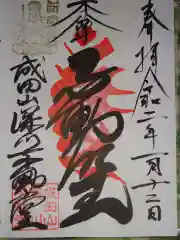 奉拝 令和二年一月十二日
本尊
不動
成田山深川不動堂